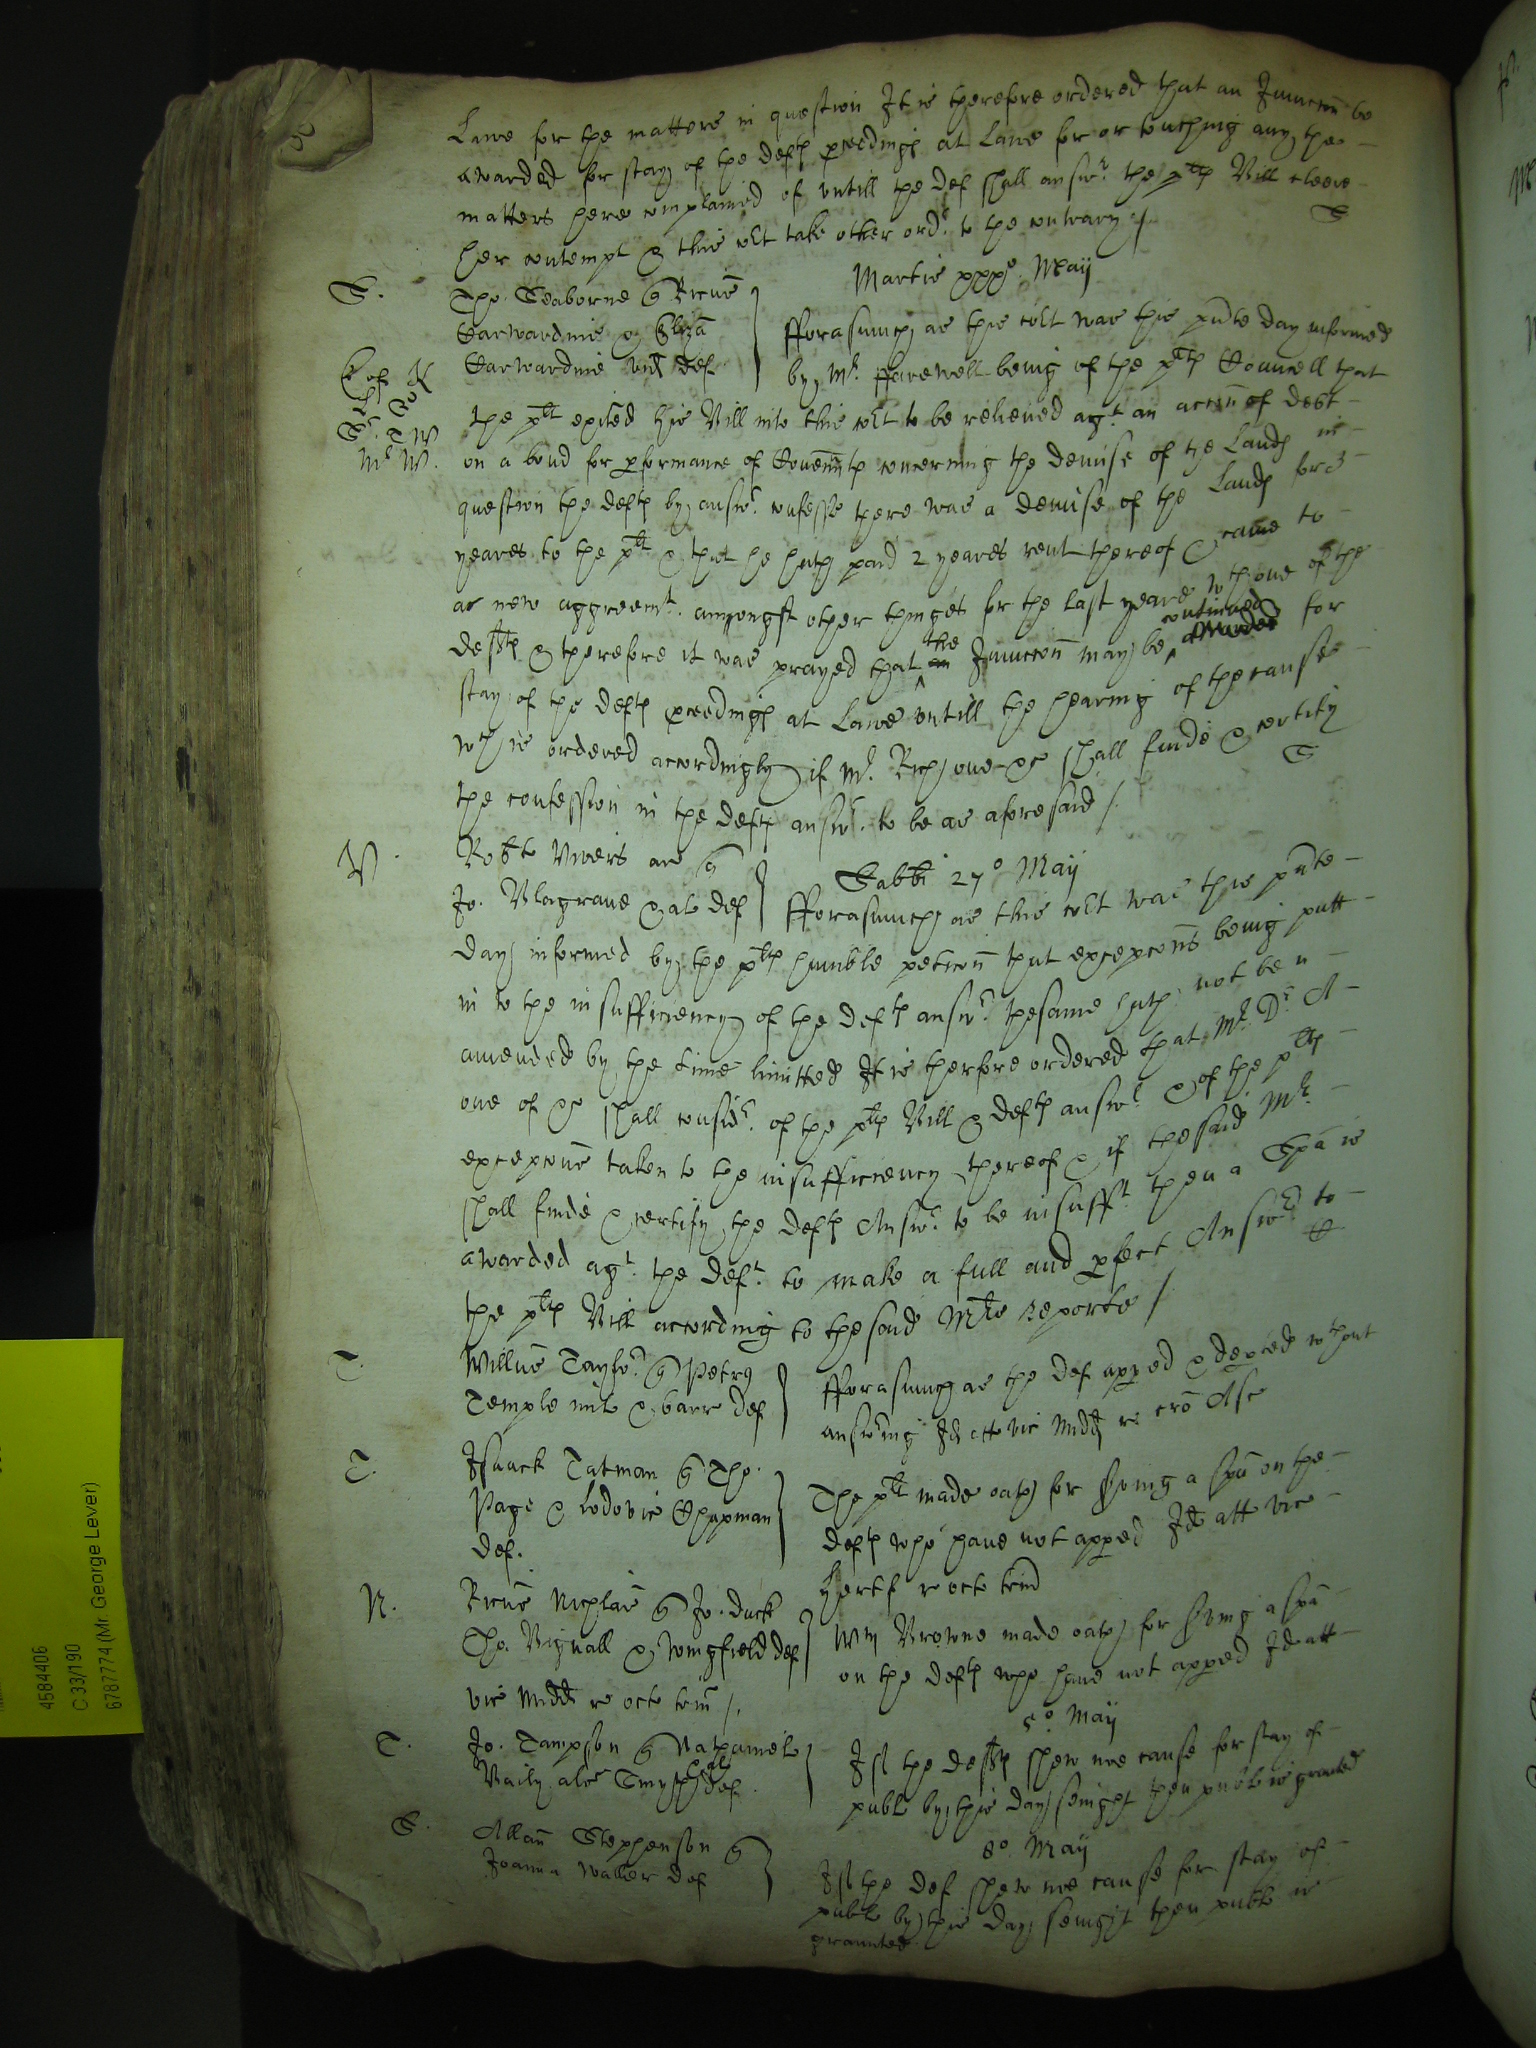 Lawe for the matters in question It is therefore ordered that an Iniunccon be
awarded for stay of the deftes proceedings at Lawe for or touching any the
matters here complained of vntill the def shall answr. the pltes Bill cleere
her contempt & this cort take other ordr. to the contrary /
S
Martis xxxo. Maij
S.
Tho. Seaborne
Harwardine & Eliza
Harwardine vid def.
fforasmuch as this cort was this pnte day informed
by Mr. ffarewell being of the pltes Councell that
the plt exited his Bill into this cort to be relieued agt. an accon of debt
Mr W.
on a bond for pformance of Couennts concerning the demise of the Lands in
question the deftes by answr. confesse there was a demise of the Lands for 3
yeares to the plt & that he hath paid 2 yeares rent thereof & came to
a new aggreemt. amongst other things for the last yeare wth one of the
deftes & therefore it was prayed that the Iniunccon may be continued for
stay of the deftes proceedings at Lawe vntill the hearing of the cause
wch is ordered accordingly if Mr. Rich one &c shall finde & certify
the confession in the deftes answr. to be as aforesaid /.
S
V.
Robte Vivers ar
Sabbi 27o Maij
Jo. Blagraue & al def
fforasmuch as this cort was this pnte
day informed by the pltes humble peticon that excepcons being putt
in to the insufficiency of the deftes answr. the same hath not been
amended by the time limitted It is therfore ordered that Mr. Dr. A
one of &c shall considr. of the pltes Bill & deftes answr. & of the pltes
excepcons taken to the insufficiency thereof & if the said Mr.
shall finde & certify the deftes Answr. to be insufft. then a Spa is
awarded agt. the deft. to make a full and pfect Answr. to
the pltes Bill according to the said Mrs reporte /
T.
Willus Taylor. Petrus
Temple mil & barr def
fforasmuch as the def apped & depted wthout
answring Id atto vic Midd re cro Asc
T.
Isaack Tatman Tho.
Page & Lodovic Chapman
def.
The plt made oath for serving a spa on the
deftes who haue not apped Ido att vic
Hertf re octo trin
N.
Ricus Jo. Duck
Tho. Bignall & Wingfield def
Wm Browne made oath for serving a spa
on the deftes who haue not apped Ido att
vic Midd re octo trin /.
5o. Maij
T.
Jo. Tampson Nathaniel
Baily als Smyth & al def.
If the deftes shew noe cause for stay of
publ by this day sevnight then publ is graunted
8o Maij
S.
Allan Stephenson
Joanna Waller def
If the def shew noe cause for stay of
publ by this day sevnight then publ is
graunted.
4584406
C 33/190
6787774 (Mr George Lever)